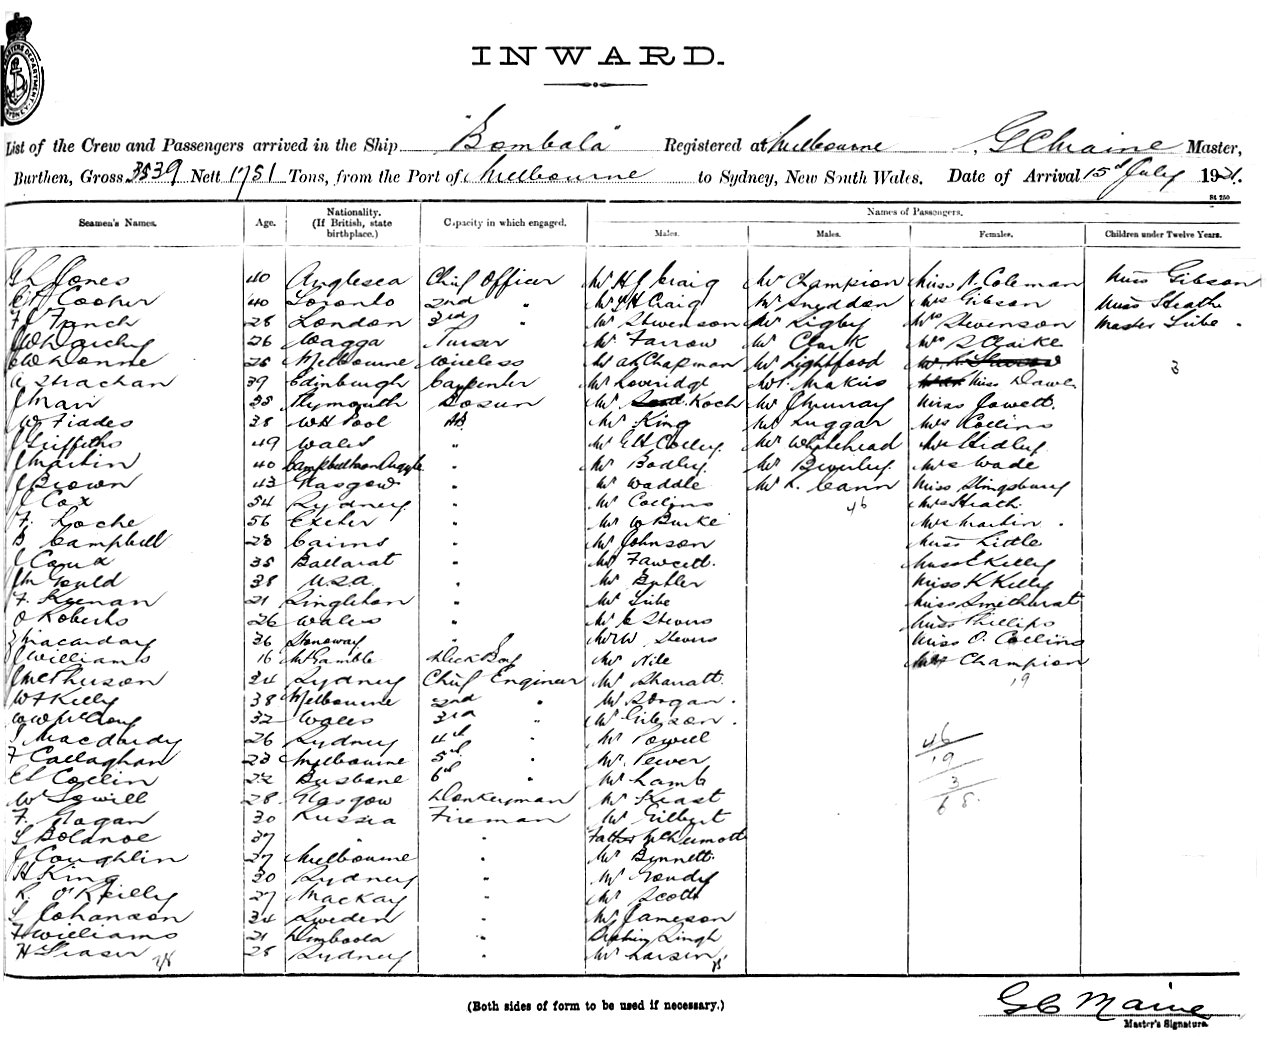 INWARD.
List of the Crew and Passengers arrived in the Ship "Bombala" Registered at Melbourne, G C Maine Master,
Burthen, Gross 3539 Nett 1751 Tons, from the Port of Melbourne to Sydney, New South Wales. Date of Arrival 15th July 1921.
St 250
Seamen's Names. Age. Nationality. (If British, state birthplace.) Capacity in which engaged. Names of Passengers.
Males. Males. Females. Children under Twelve Years.
G L Jones 40 Anglesea Chief Officer Mr H J Craig Mr Champion Miss N. Coleman Miss Gibson
Cooper 40 Toronto 2nd " Mr Craig Mr Snedden Mrs Gibson Miss Heath
F J French 28 London 3rd " Mr Stevenson Mr Rigby Mrs Stevenson Master Tribe
26 Wagga Purser Mr Farrow Mr Clark Mrs S Clarke
25 Melbourne Wireless Mr A Chapman Mr Lightfood
3
A Strachan 39 Edinburgh Carpenter Mr Loveridge Mr Makin Miss Dawe
J Mair 35 Plymouth Bosun Mr Koch Mr J Murray Miss Jowett
W Fiades 38 W H Pool AB Mr King Mr Luggar Mrs Collins
J Griffiths 49 Wales " Mr E H Colley Mr Whitehead Mrs Hedley
J Martin 40 " Mr Bodley Mr Beverley Mrs Wade
J Brown 43 Glasgow " Mr Waddle Mr L. Cann Miss Slingsburg
J Cox 54 Sydney " Mr Collins 46 Mrs Heath
F. Loche 56 Exeter " Mr W Burke Mrs Martin
B Campbell 28 Cairns " Mr Johnson Miss Little
J 35 Ballarat " Mr Fawcett Miss E Kelly
J M Gould 38 USA " Mr Butler Miss K Kelly
F. Keenan 21 Singleton " Mr Tribe Miss Smethurst
O Roberts 26 Wales " Mr C Stevens Miss Phillips
Macarday 36 Stonoway " Mr W Stevens Miss O. Collins
J Williams 16 Deck Boy Mr Nile Champion
34 Sydney Chief Engineer Mr Sharatt 19
W F Kelly 38 Melbourne 2nd " Mr Morgan
32 Wales 3rd " Mr Gibson
Macdardy 26 Sydney 4th " Mr Powell 46
F Callaghan 23 Melbourne 5th " Mr Pewer 19
Collin 22 Brisbane 6th " Mr Lamb 3
W Sewill 28 Glasgow Donkeyman Mr Keast 68
F. Hagan 30 Russia Fireman Mr Gilbert
37 " " Father McDermott
J Coughlin 27 Melbourne " Mr Bennett
H King 30 Sydney " Mr Goudy
R. O'Reilly 27 Mackay " Mr Scott
Johanson 34 Sweden " Mr Jameson
F Williams 21 Dimboola " Singh
H Fraser 28 Sydney " Mr Larsen
(Both sides of form to be used if necessary.)
G C Maine
Master's Signature.